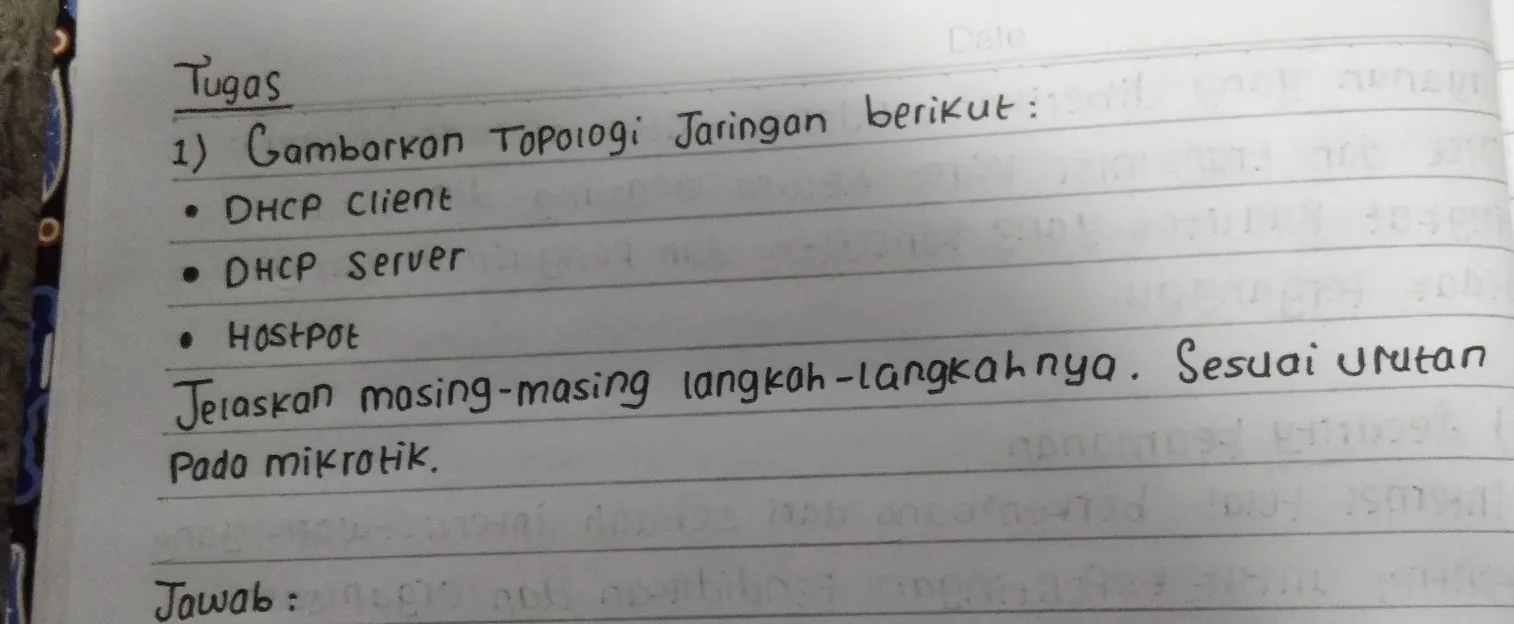 Date
Tugas
1) Gambarkan Topologi Jaringan berikut :
• DHCP Client
• DHCP Server
• Hostpot
Jelaskan masing-masing langkah-langkahnya. Sesuai urutan
Pada mikrotik.
Jawab :